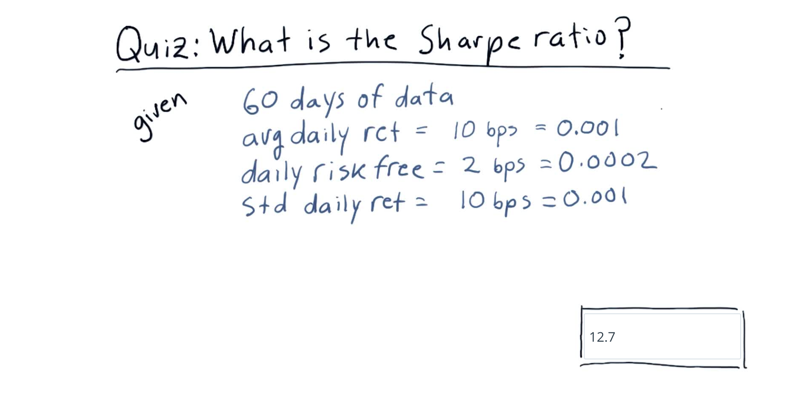 Quiz: What is the Sharpe ratio?
given
60 days of data
avg daily ret = 10 bps = 0.001
daily risk free = 2 bps = 0.0002
Std daily ret = 10 bps = 0.001
12.7